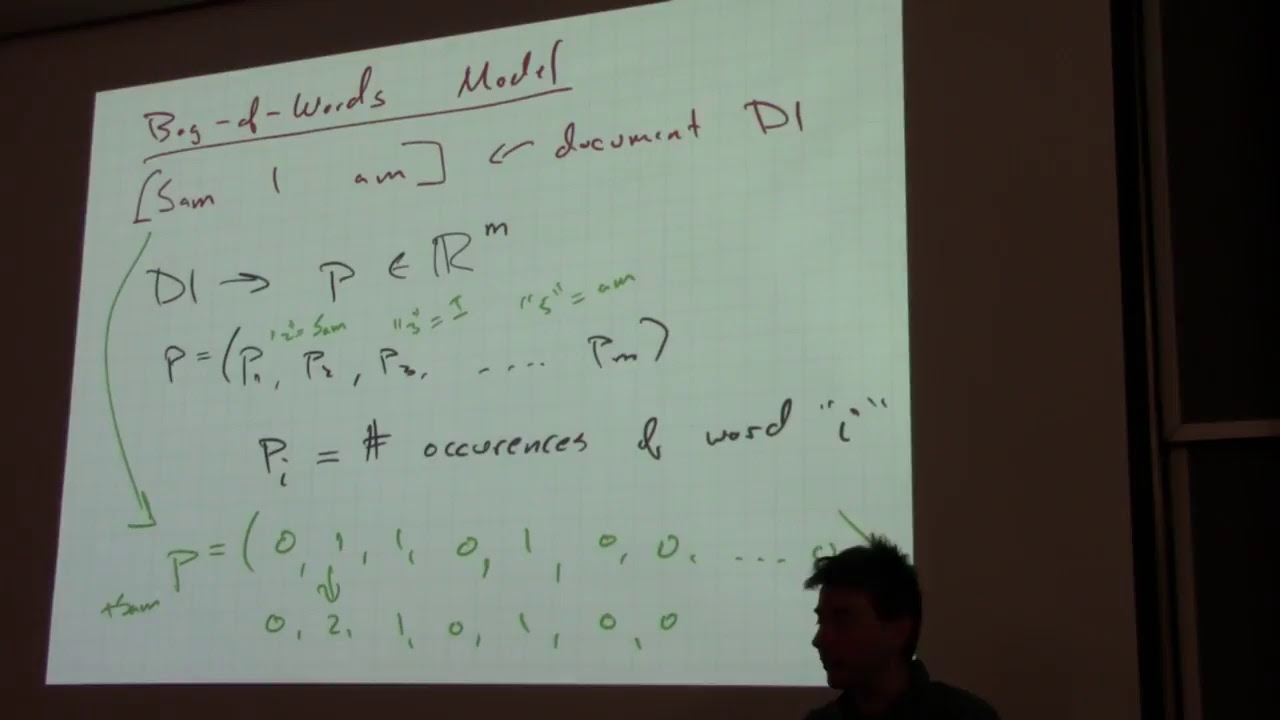 Bag-of-Words Model
[Sam I am] ← document D1
D1 → P ∈ ℝ^m
"2"=Sam "3"=I "5"=am
P=(P₁, P₂, P₃, .... Pₘ)
Pᵢ = # occurences of word "i"
P=(0, 1, 1, 0, 1, 0, 0, ....
+Sam ↓
0, 2, 1, 0, 1, 0, 0